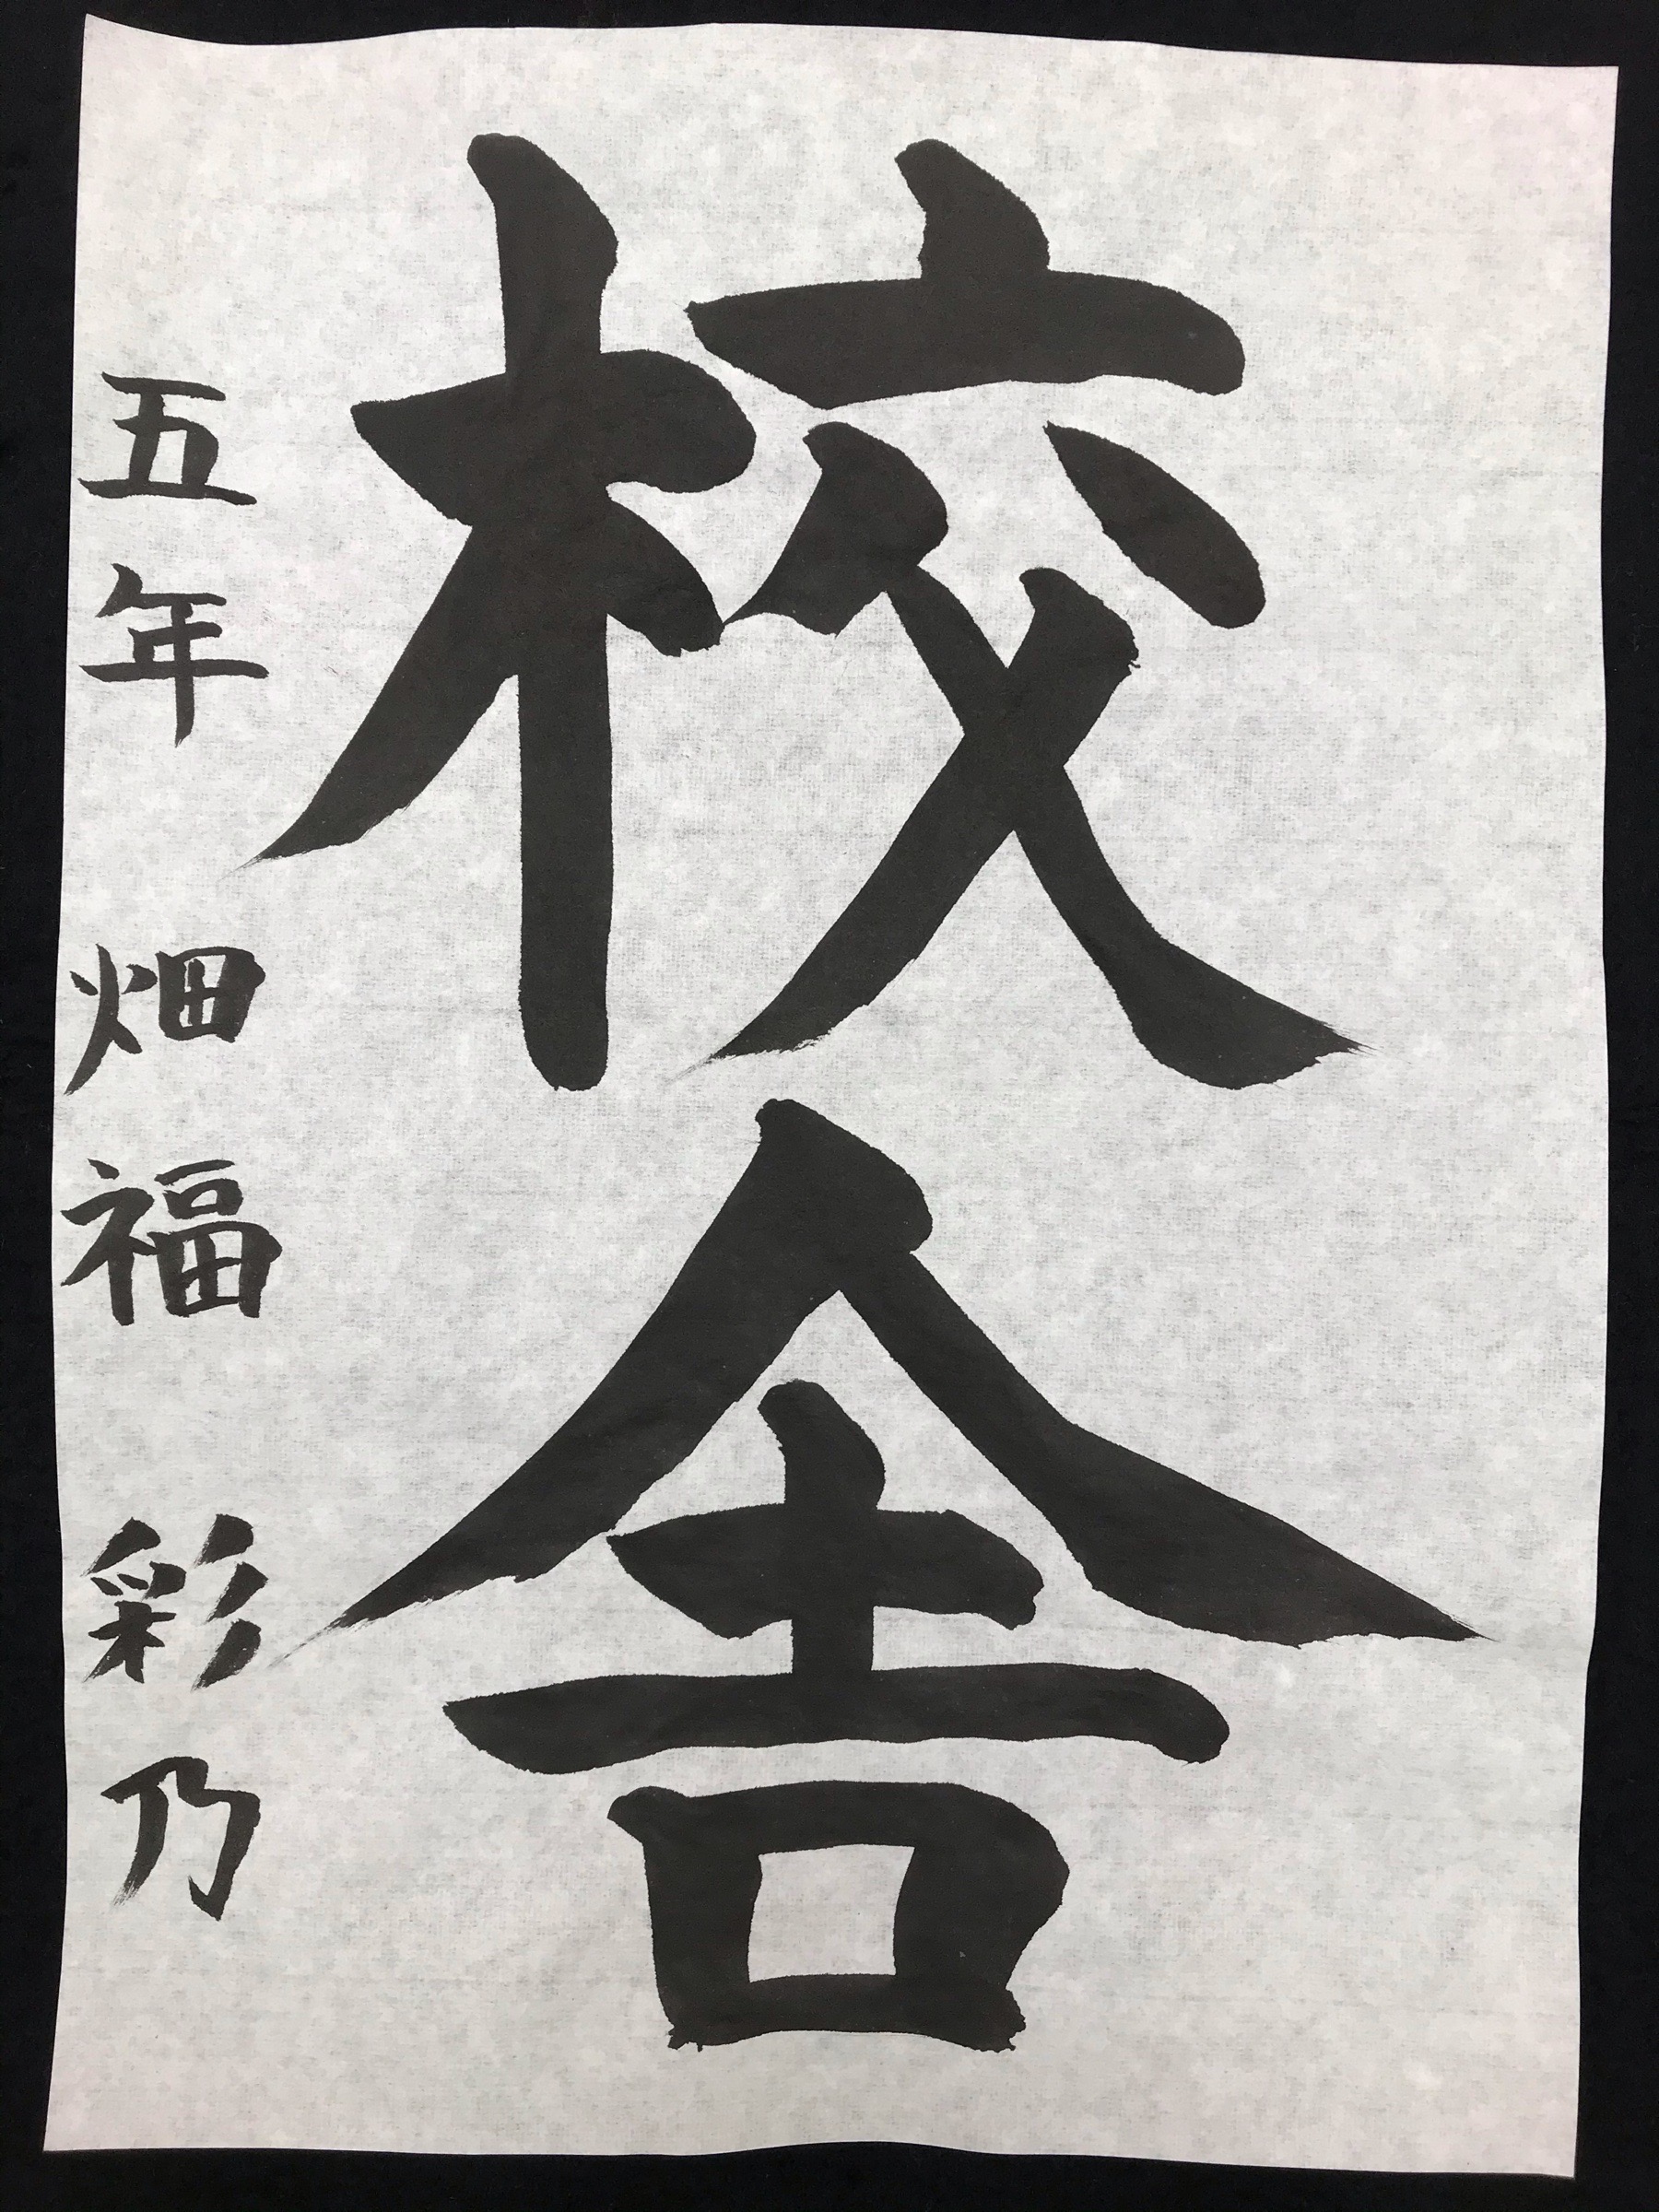 校舎
五年 畑福 彩乃